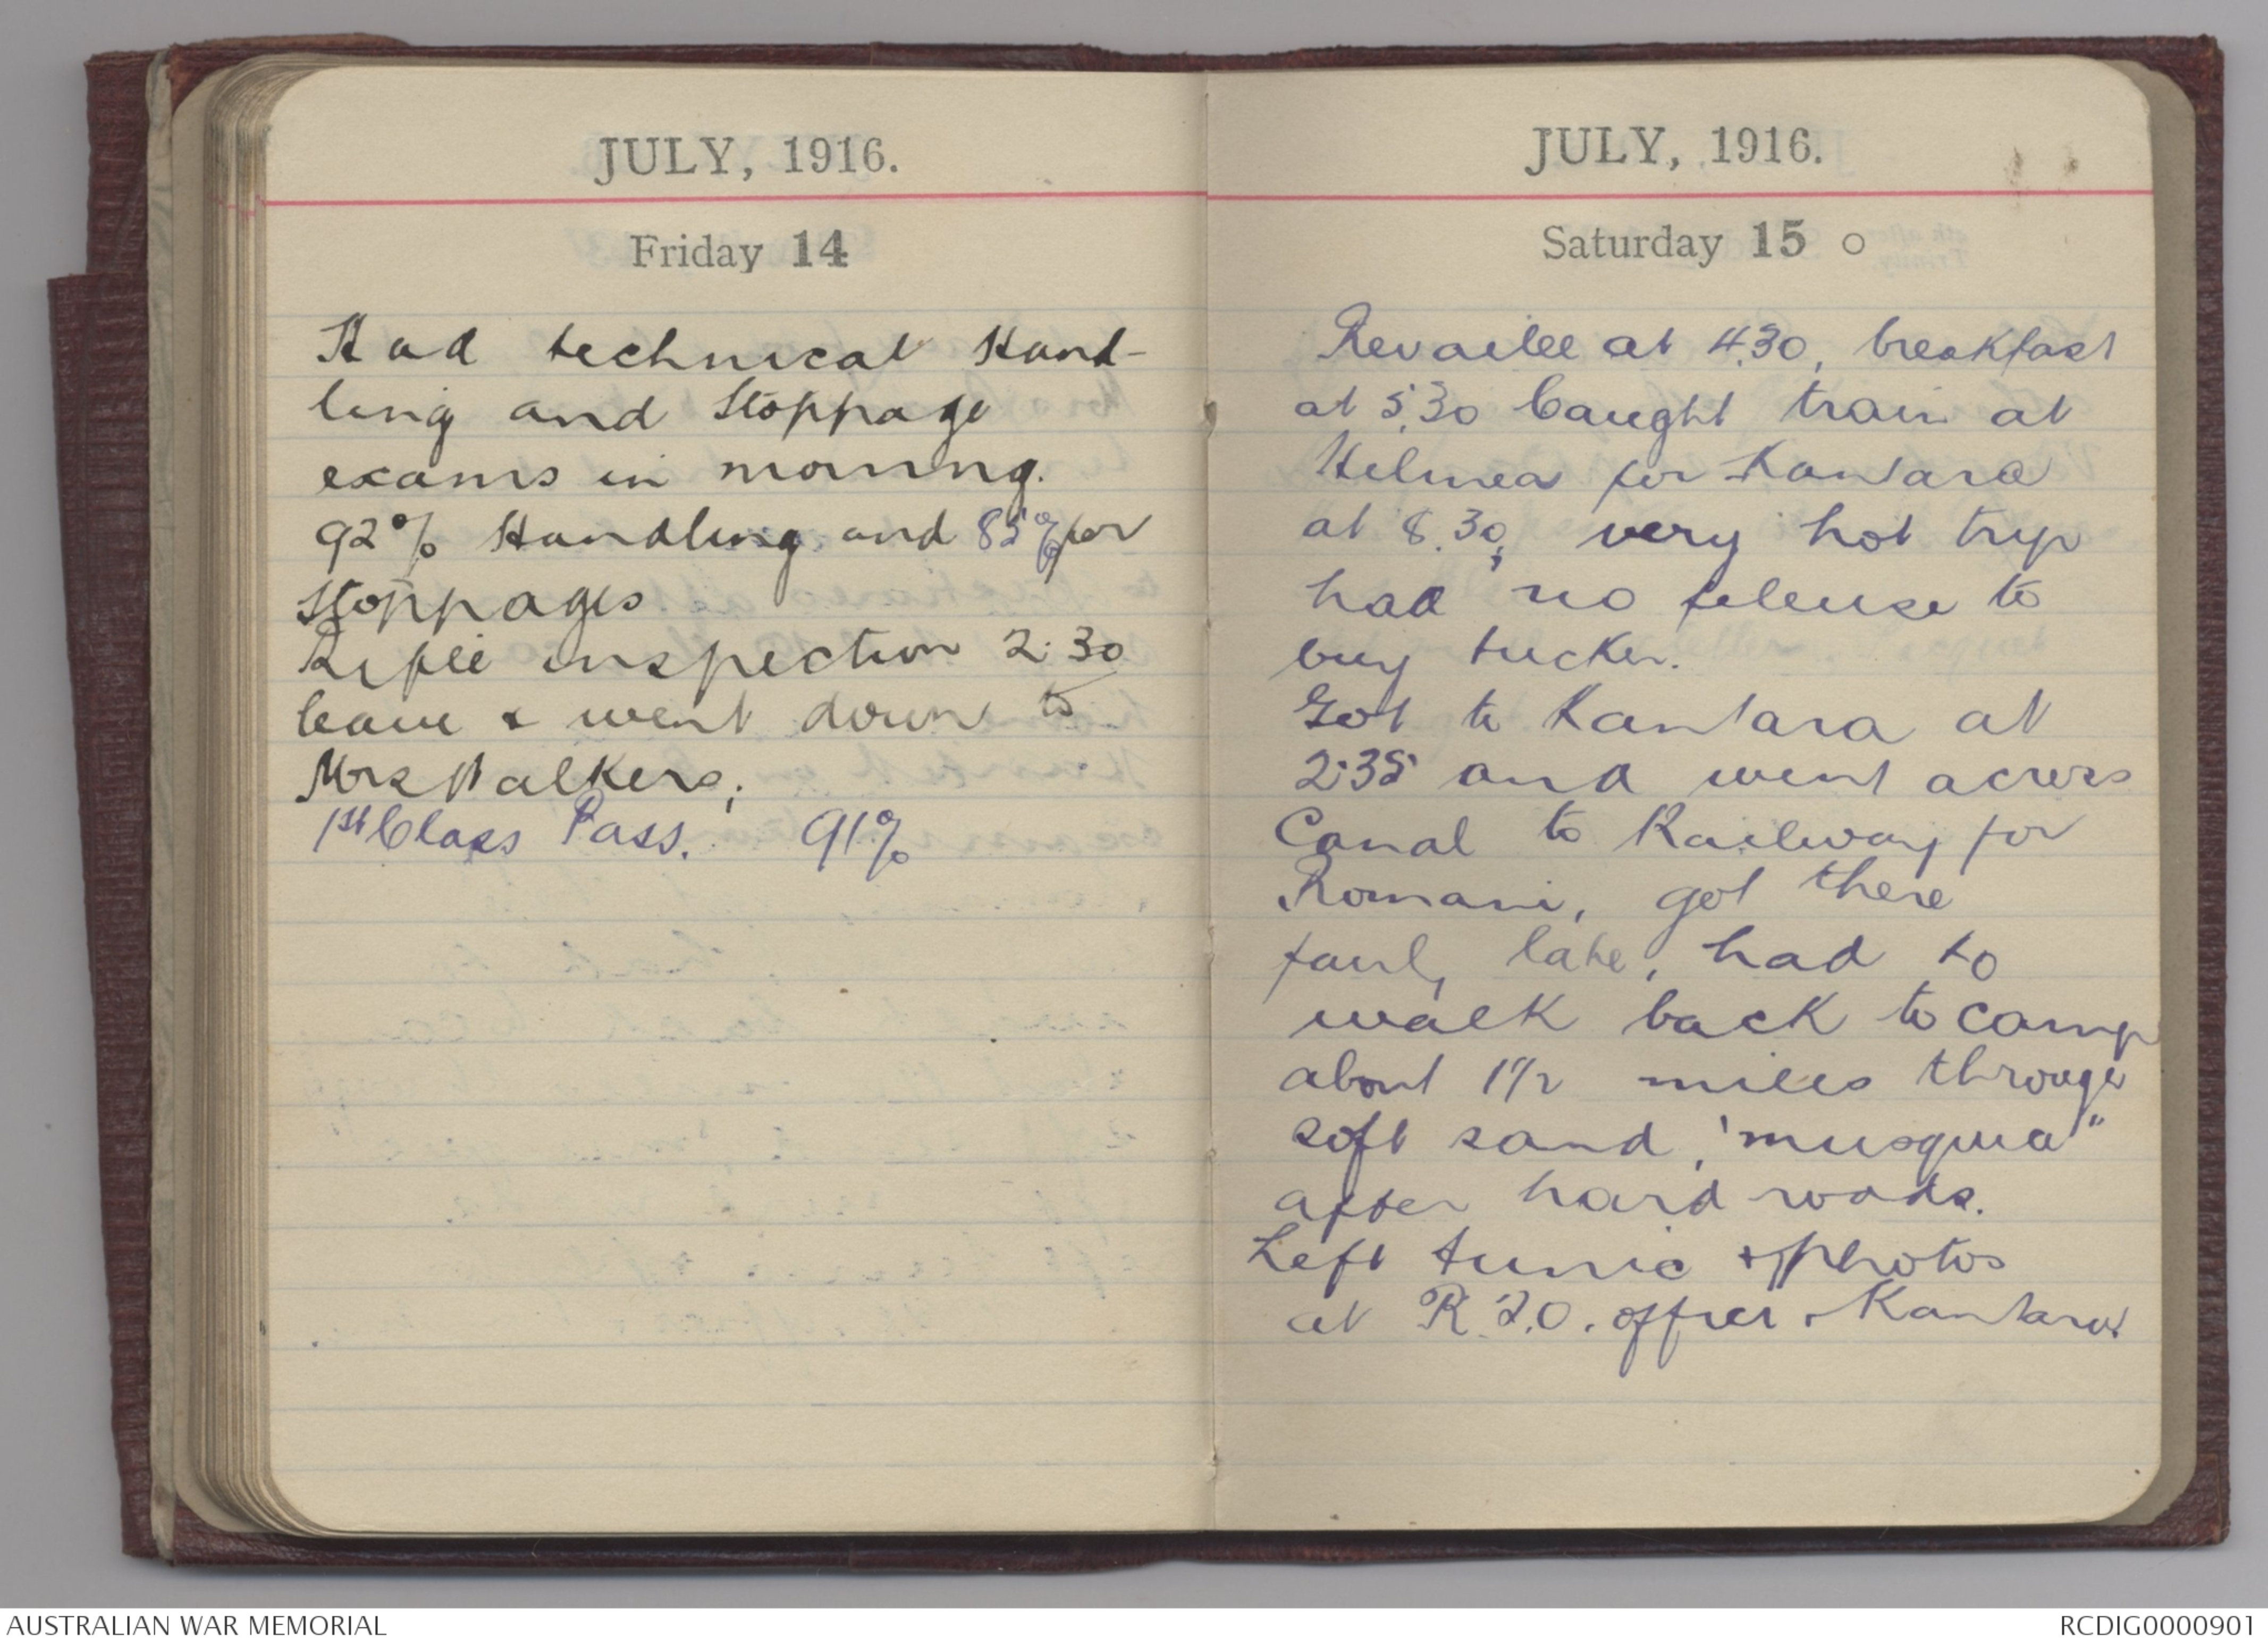 JULY, 1916.
Friday 14
Had technical Hand-
ling and Stoppage
exams in morning.
92% Handling and 85% for
Stoppages
Rifle inspection 2.30
leave & went down to
Mrs Walkers;
1st Class Pass. 91%
JULY, 1916.
Saturday 15 O
Revailee at 4.30, breakfast
at 5.30 Caught train at
Helmea for Kantara
at 8.30, very hot trip
had no feleuse to
buy tucker.
Got to Kantara at
2.35 and went across
Canal to Railway for
Romani, got there
fairly late, had to
walk back to camp
about 1 1/2 miles through
soft sand, "musquia"
after hard roads.
Left tunic & photos
at R.T.O. office, Kantara.
AUSTRALIAN WAR MEMORIAL
RCDIG0000901